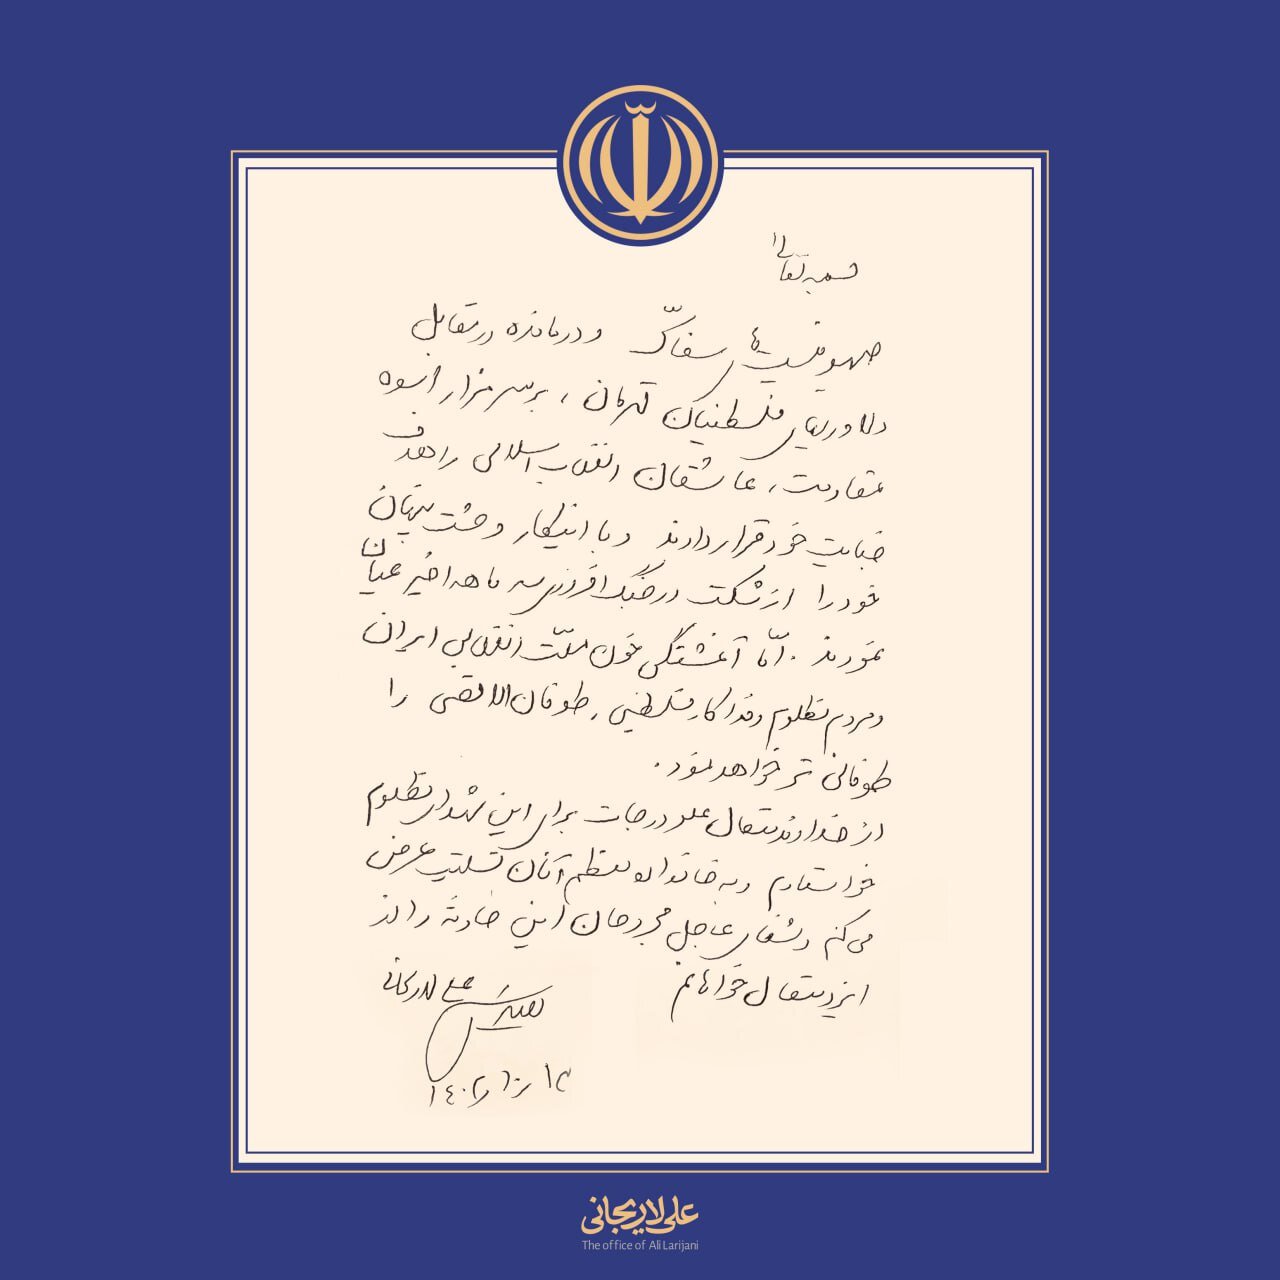 بسمه تعالی
صهیونیست‌های سفاک و درمانده در مقابل
دلاوریهای فلسطنیان قهرمان، بر سر مزار اسوه
مقاومت، عاشقان انقلاب اسلامی را هدف
خباثت خود قرار دادند و با اینکار وحشت پنهان
خود را از شکست در جنگ افروزی سه ماهه اخیر عیان
نمودند. امّا آغشتگی خون ملّت انقلابی ایران
و مردم مظلوم و فداکار فلسطین، طوفان الاقصی را
طوفانی تر خواهد نمود.
از خداوند متعال علو درجات برای این شهدای مظلوم
خواستارم و به خانواده معظم آنان تسلیت عرض
می‌کنم و شفای عاجل مجروحان این حادثه را از
ایزد متعال خواهانم
علی لاریجانی
۱۴۰۲/۱۰/۱۳
علی لاریجانی
The office of Ali Larijani